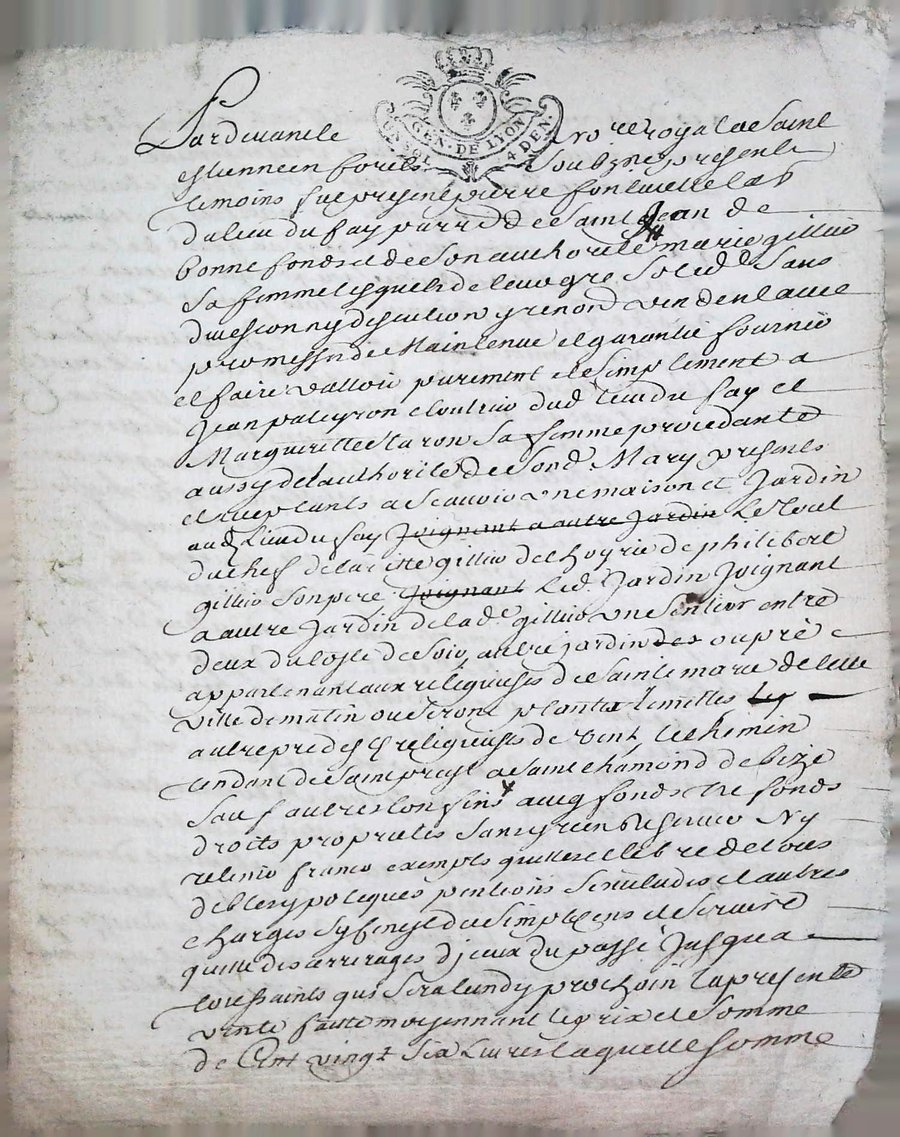 GEN · DE LYON
4 DEN ·
Pardevant le no.re royal de Saint
estienne en forests soubzné presents
temoins fut present pierre fontvielle lab
du lieu du fay parre de Saint Jean de
bonnefonds et de son authorité marie gillier
sa femme lesquels de leur gre solid.t sans
division ny discution y renond vendent avec
promesse de Maintenue et garantie fournir
et faire valloir purement et simplement a
Jean paleyron cloutrier dud lieu du fay et
Margueritte staron sa femme procedante
aussy de l'authorité de sond Mary presents
et acceptants a scavoir une maison et Jardin
aud Lieu du fay Joignant a autre Jardin Le tout
du chef de la ditte gillier de l'hoyrie de philibert
gillier son pere Joignant Led. Jardin Joignant
a autre Jardin de la de gillier une sentier entre
deux du coste de soir, autre jardin des ou pré
appartenant aux religieuses de Sainte marie de cette
ville de matin ou seront plantes limittes les
autre pré desd religieuses de vent le chemin
tendant de Saint preist a Saint chamond de bize
Sauf autres confins avecq fonds tre fonds
droits proprietes sans y rien reserver Ny
retenir franco exempts quittes et libre de tous
debtes ypoteques pentions servitudes et autres
charges sy fors du simple cens et servire
quitte des arrerages d'jceux du passé Jusqu'a
toussaints qui sera lundy prochain la presente
vente faitte moyennant le prix et somme
de Cent vingt six Livres laquelle somme